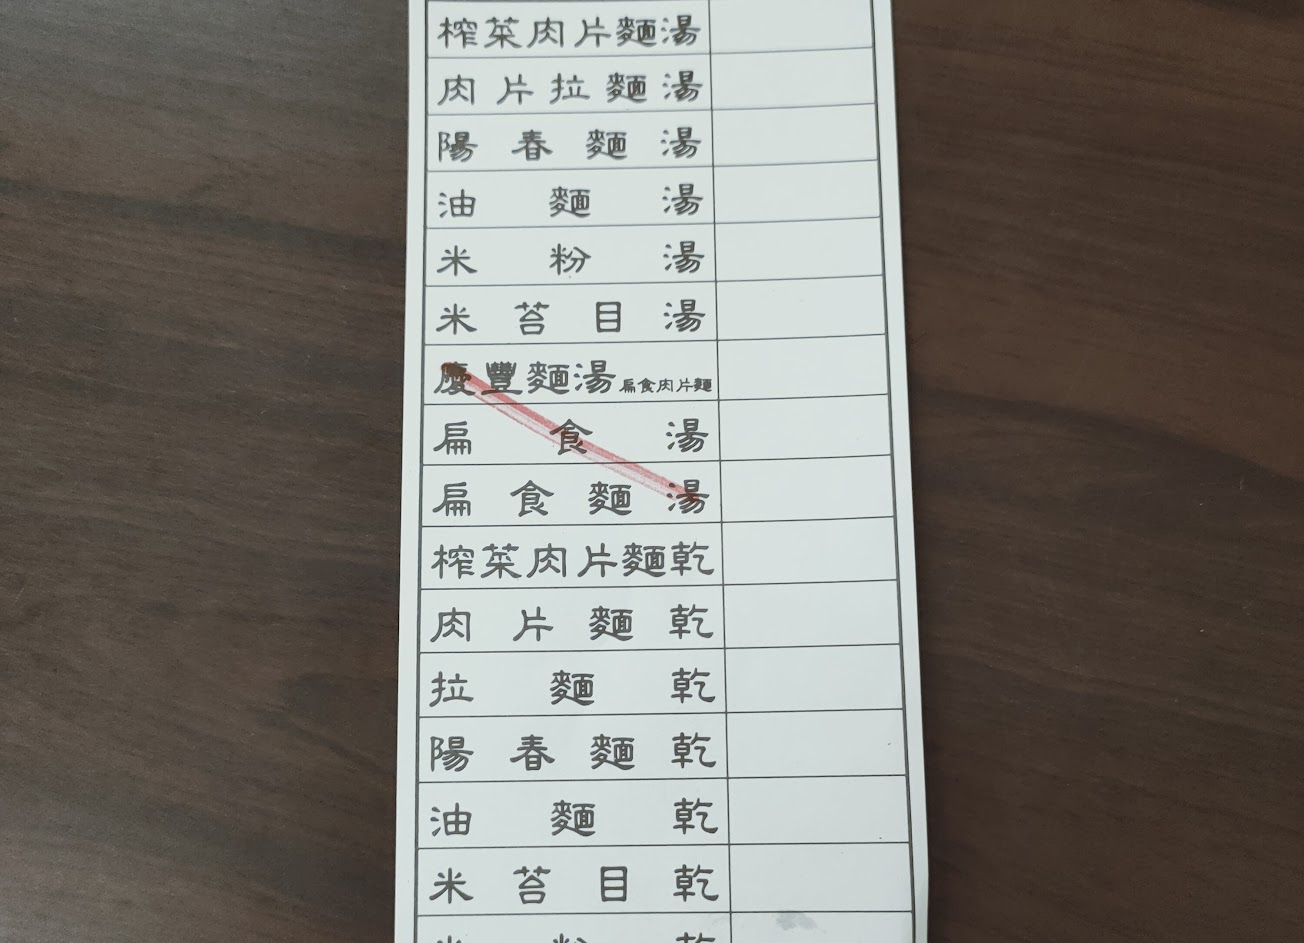 榨菜肉片麵湯
肉片拉麵湯
陽春麵湯
油麵湯
米粉湯
米苔目湯
慶豐麵湯 扁食肉片麵
扁食湯
扁食麵湯
榨菜肉片麵乾
肉片麵乾
拉麵乾
陽春麵乾
油麵乾
米苔目乾
米粉乾